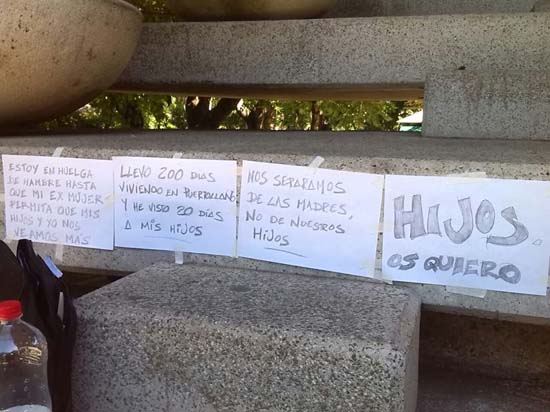 ESTOY EN HUELGA
DE HAMBRE HASTA
QUE MI EX MUJER
PERMITA QUE MIS
HIJOS Y YO NOS
VEAMOS MAS
LLEVO 200 DIAS
VIVIENDO EN PUERTOLLANO
Y HE VISTO 20 DIAS
A MIS HIJOS
NOS SEPARAMOS
DE LAS MADRES,
NO DE NUESTROS
HIJOS
HIJOS
OS QUIERO